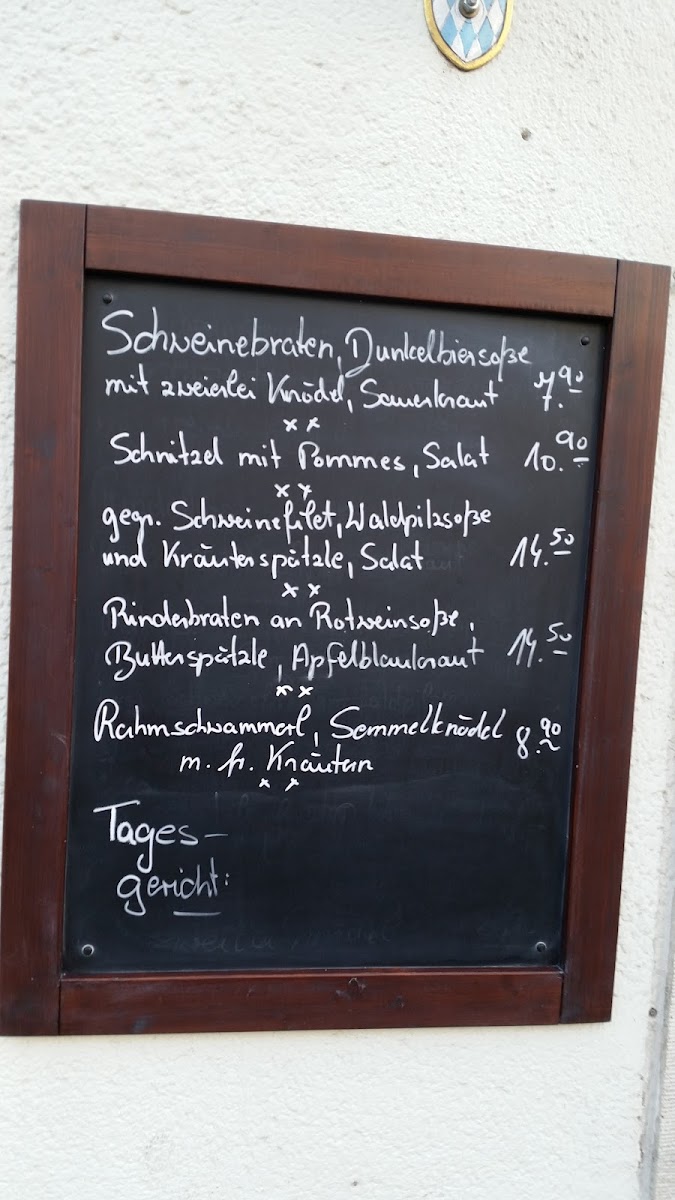 Schweinebraten, Dunkelbiersoße
mit zweierlei Knödel, Sauerkraut 7.90
x x
Schnitzel mit Pommes, Salat 10.90
x x
gegr. Schweinefilet, Waldpilzsoße
und Kräuterspätzle, Salat 14.50
x x
Rinderbraten an Rotweinsoße,
Butterspätzle, Apfelblaukraut 14.50
x x
Rahmschwammerl, Semmelknödel 8.90
m. fr. Kräutern
x x
Tages-
gericht: